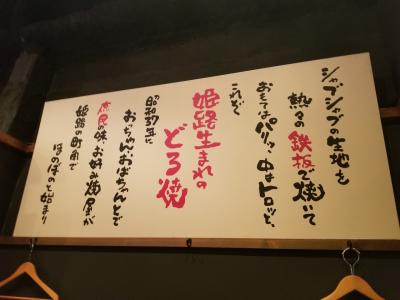 シャブシャブの生地を
熱々の鉄板で焼いて
おもてはパリッ、中はトロッと、
これぞ
姫路生まれの
どろ焼
昭和37年に
おっちゃん、おばちゃんとで
庶民の味、お好み焼屋が
姫路の町角で
ほのぼのと始まり